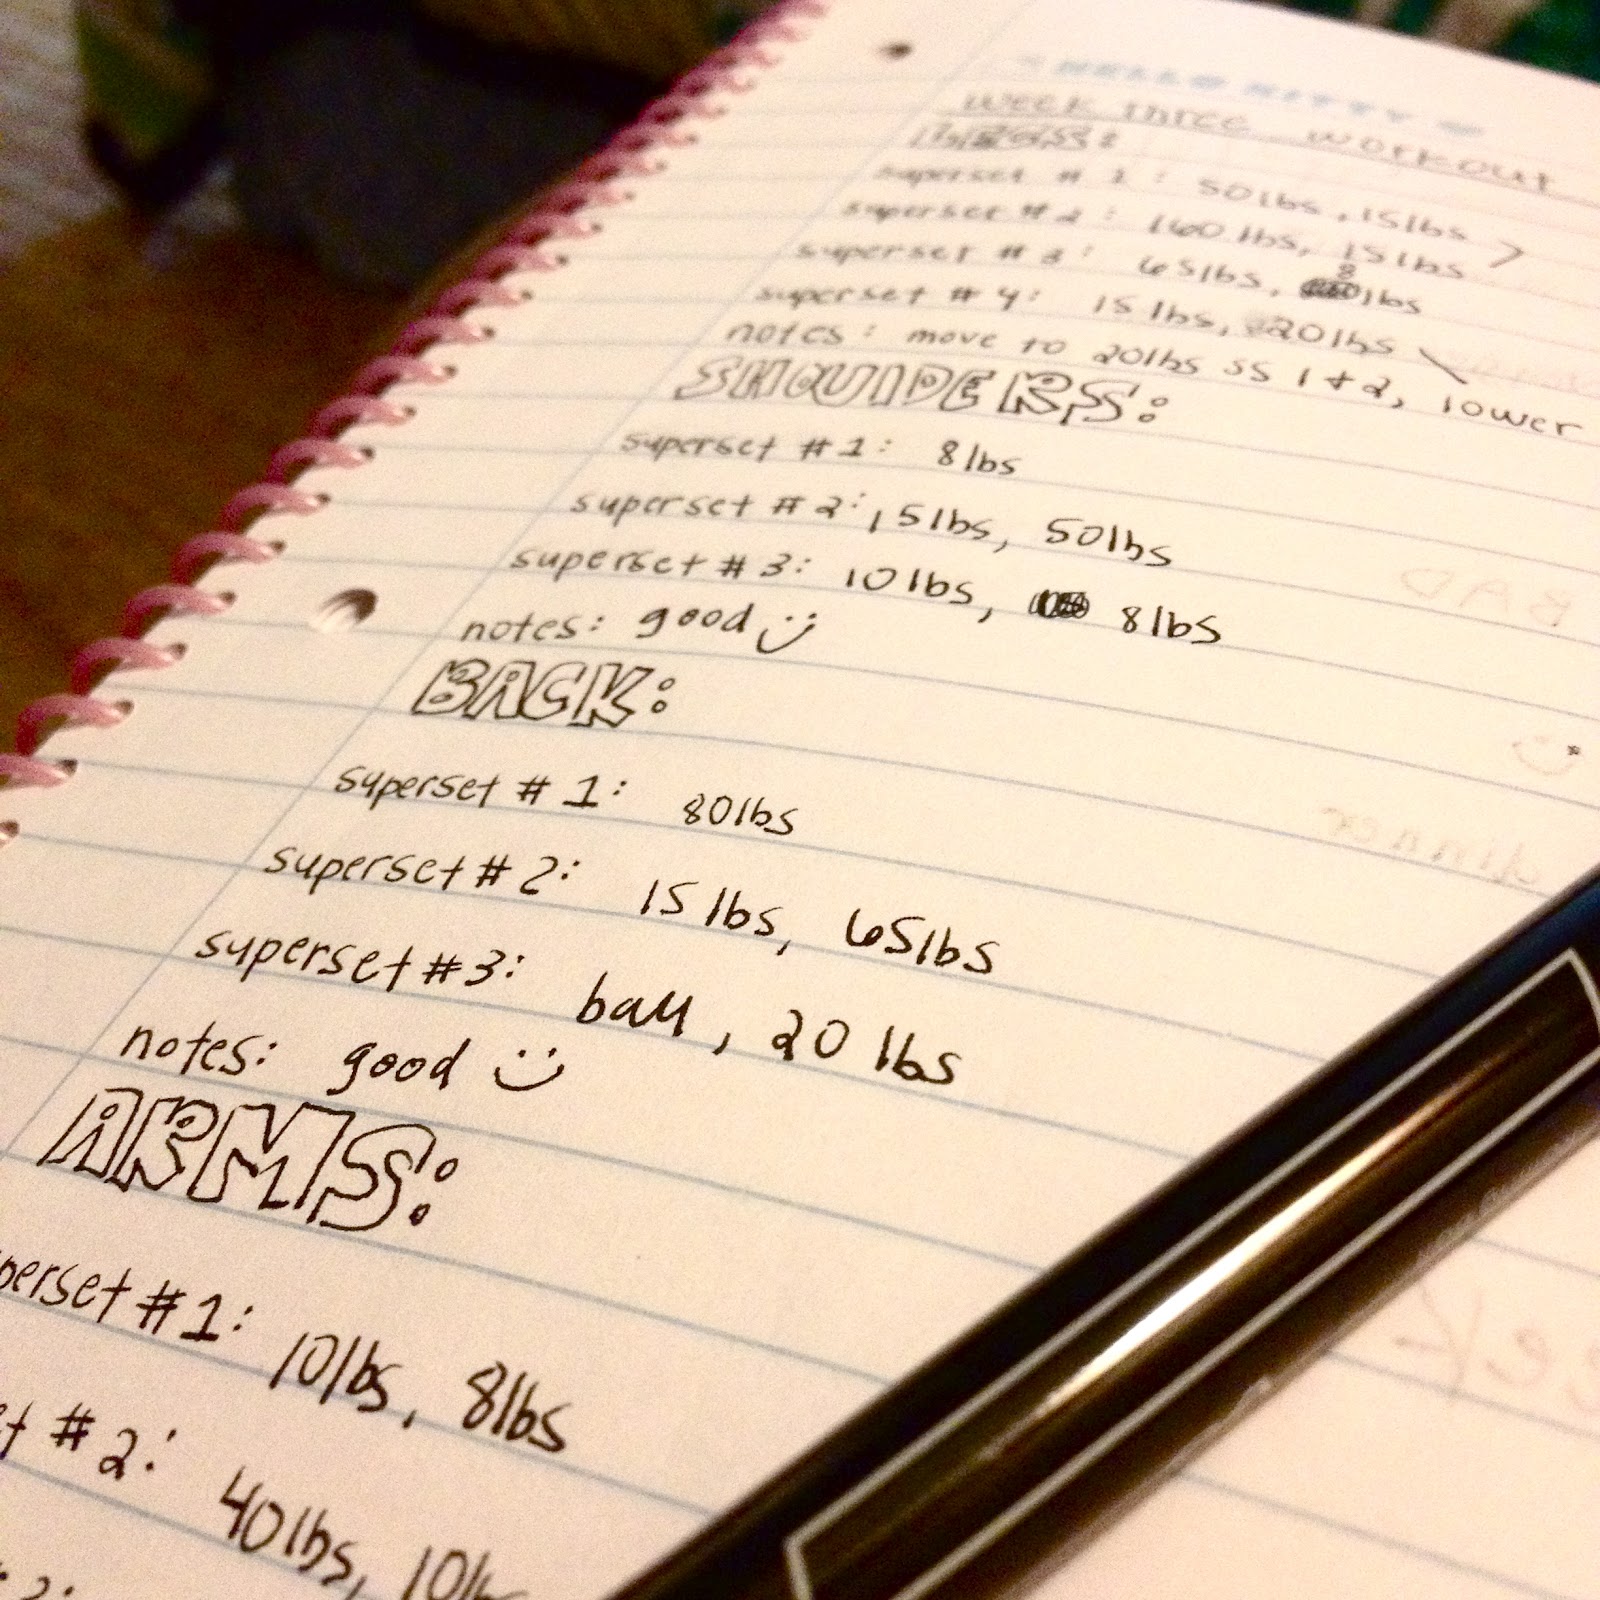 HELLO KITTY
week three workout
LEGS:
superset #1: 50lbs, 15lbs
superset #2: 160 lbs, 15lbs >
superset #3: 65lbs, 8 lbs
superset #4: 15 lbs, 20lbs
notes: move to 20lbs ss 1+2, lower
SHOULDERS:
superset #1: 8lbs
superset #2: 15lbs, 50lbs
superset #3: 10lbs, 8lbs
notes: good :)
BACK:
superset #1: 80lbs
superset #2: 15 lbs, 65lbs
superset #3: ball, 20 lbs
notes: good :)
ARMS:
perset #1: 10lbs, 8lbs
t #2: 40lbs, 10lb